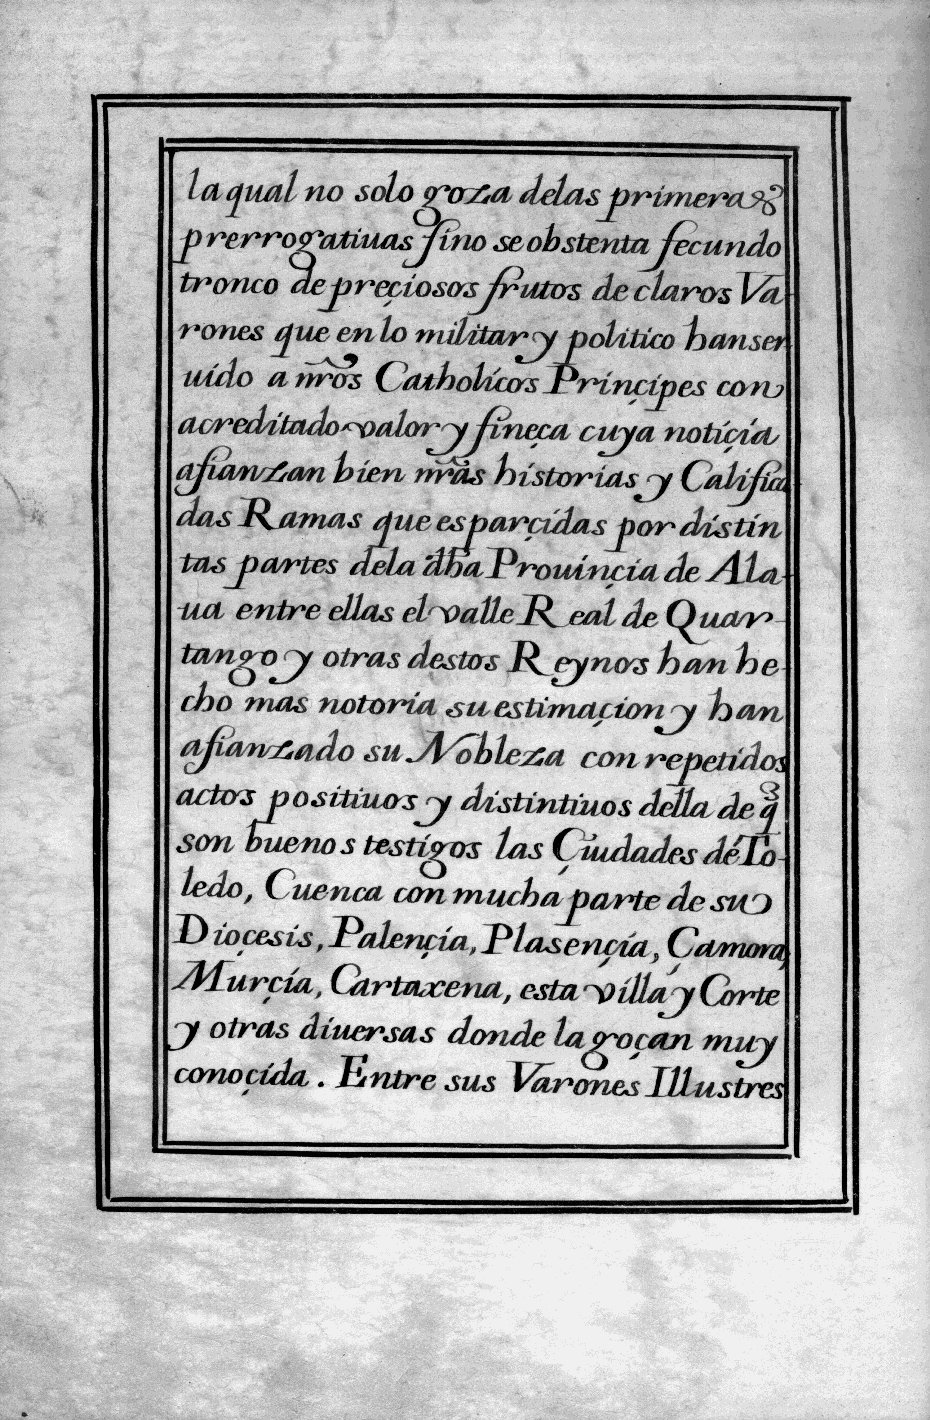 la qual no solo goza delas primeras
prerrogatiuas sino se obstenta fecundo
tronco de preçiosos frutos de claros Va-
rones que en lo militar y politico han ser
uido a nr̃os Catholicos Prinçipes con
acreditado valor y fineça cuya notiçia
afianzan bien nr̃as historias y Califica-
das Ramas que esparçidas por distin
tas partes dela dh̃a Prouinçia de Ala-
ua entre ellas el valle Real de Quar-
tango y otras destos Reynos han he-
cho mas notoria su estimaçion y han
afianzado su Nobleza con repetidos
actos positiuos y distintiuos della de q̃
son buenos testigos las Çiudades de To-
ledo, Cuenca con mucha parte de su
Dioçesis, Palençia, Plasençia, Çamora,
Murçia, Cartaxena, esta villa y Corte
y otras diuersas donde la goçan muy
conoçida. Entre sus Varones Illustres